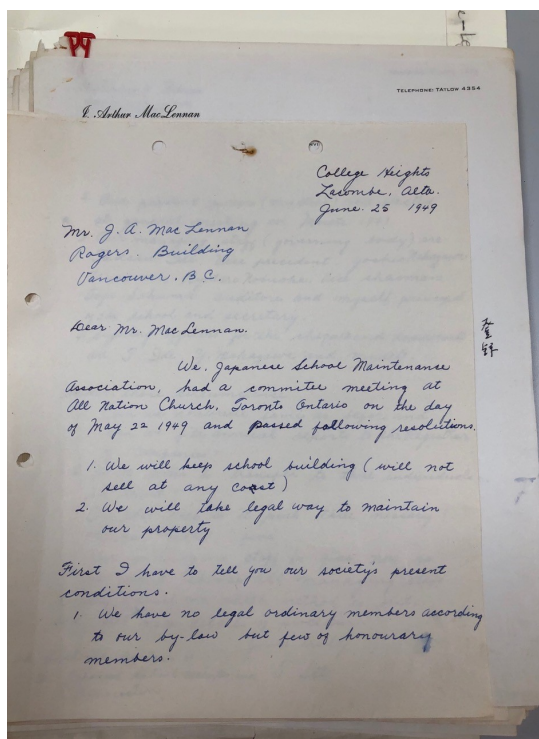 TELEPHONE: TATLOW 4354
J. Arthur MacLennan
College Heights
Lacombe, Alta.
June. 25 1949
Mr. J. A. Mac Lennan
Rogers. Building
Vancouver. B.C.
Dear Mr. Mac Lennan.
We. Japanese School Maintenanse
Association, had a commitee meeting at
All Nation Church, Toronto Ontario on the day
of May 22 1949 and passed following resolutions.
1. We will keep school building (will not
sell at any coast)
2. We will take legal way to maintain
our property
First I have to tell you our society's present
conditions.
1. We have no legal ordinary members according
to our by-law but few of honourary
members.